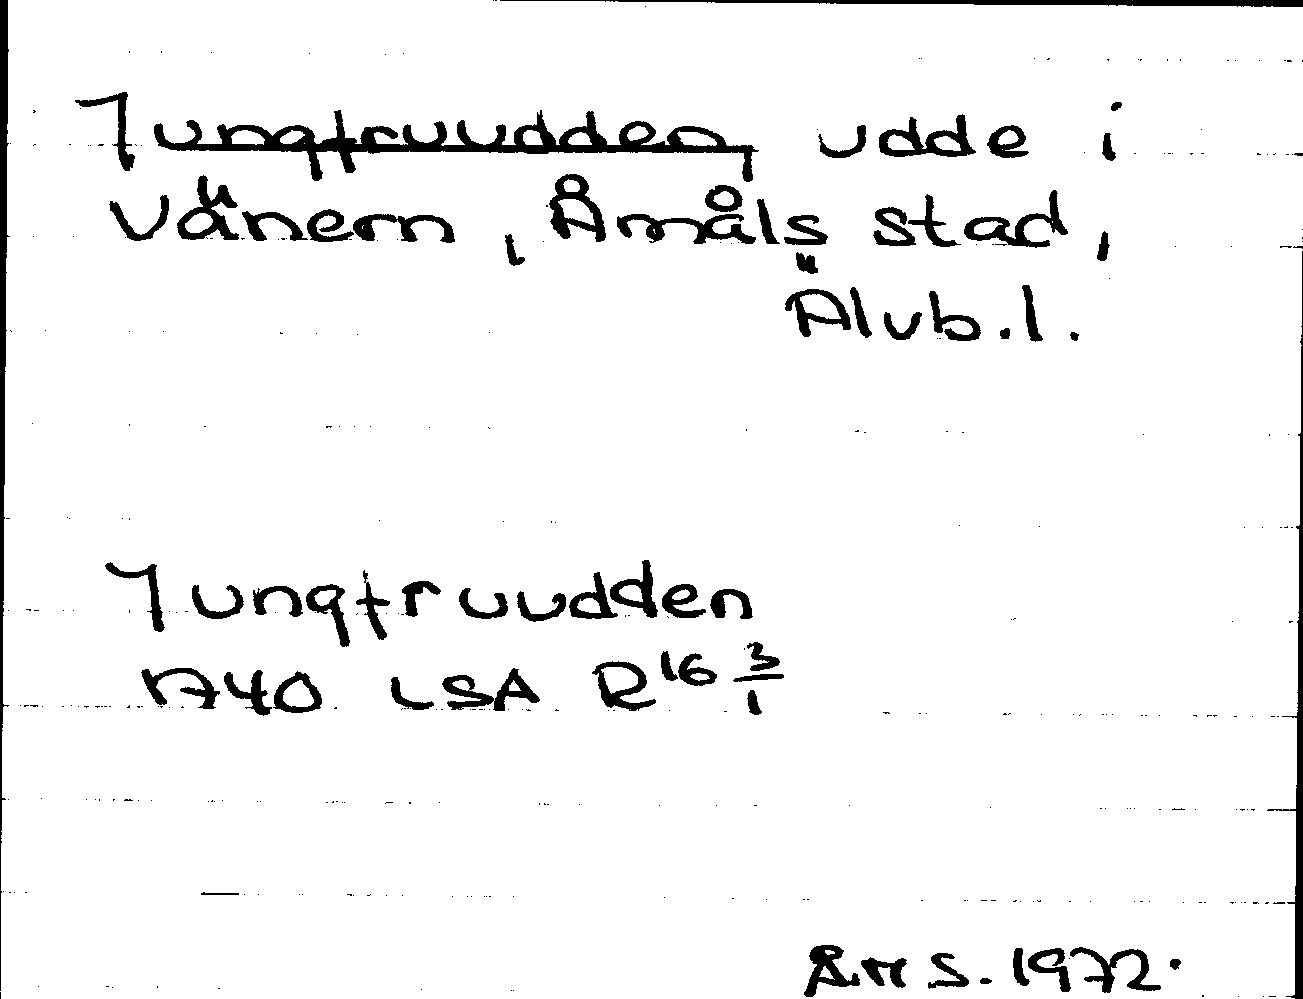 Jungfruudden, udde i
Vänern, Åmåls stad,
Älvb.l.
Jungfruudden
1740 LSA R16 3/1
Å.M S. 1972.